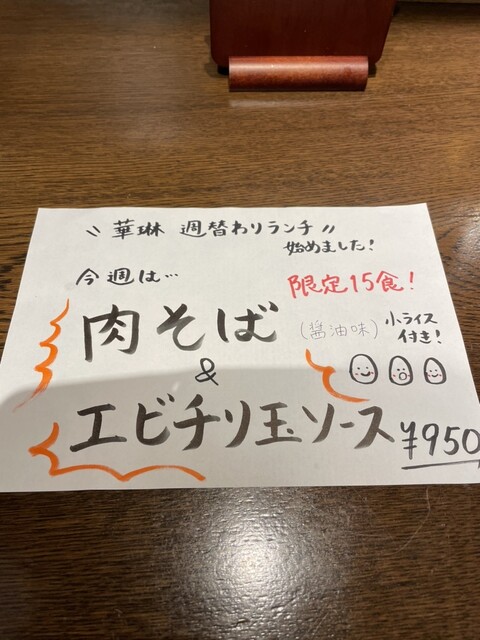 〃華琳 週替わりランチ〃
始めました!
今週は…
限定15食!
肉そば
(醤油味)
小ライス
付き!
&
エビチリ玉ソース
¥950